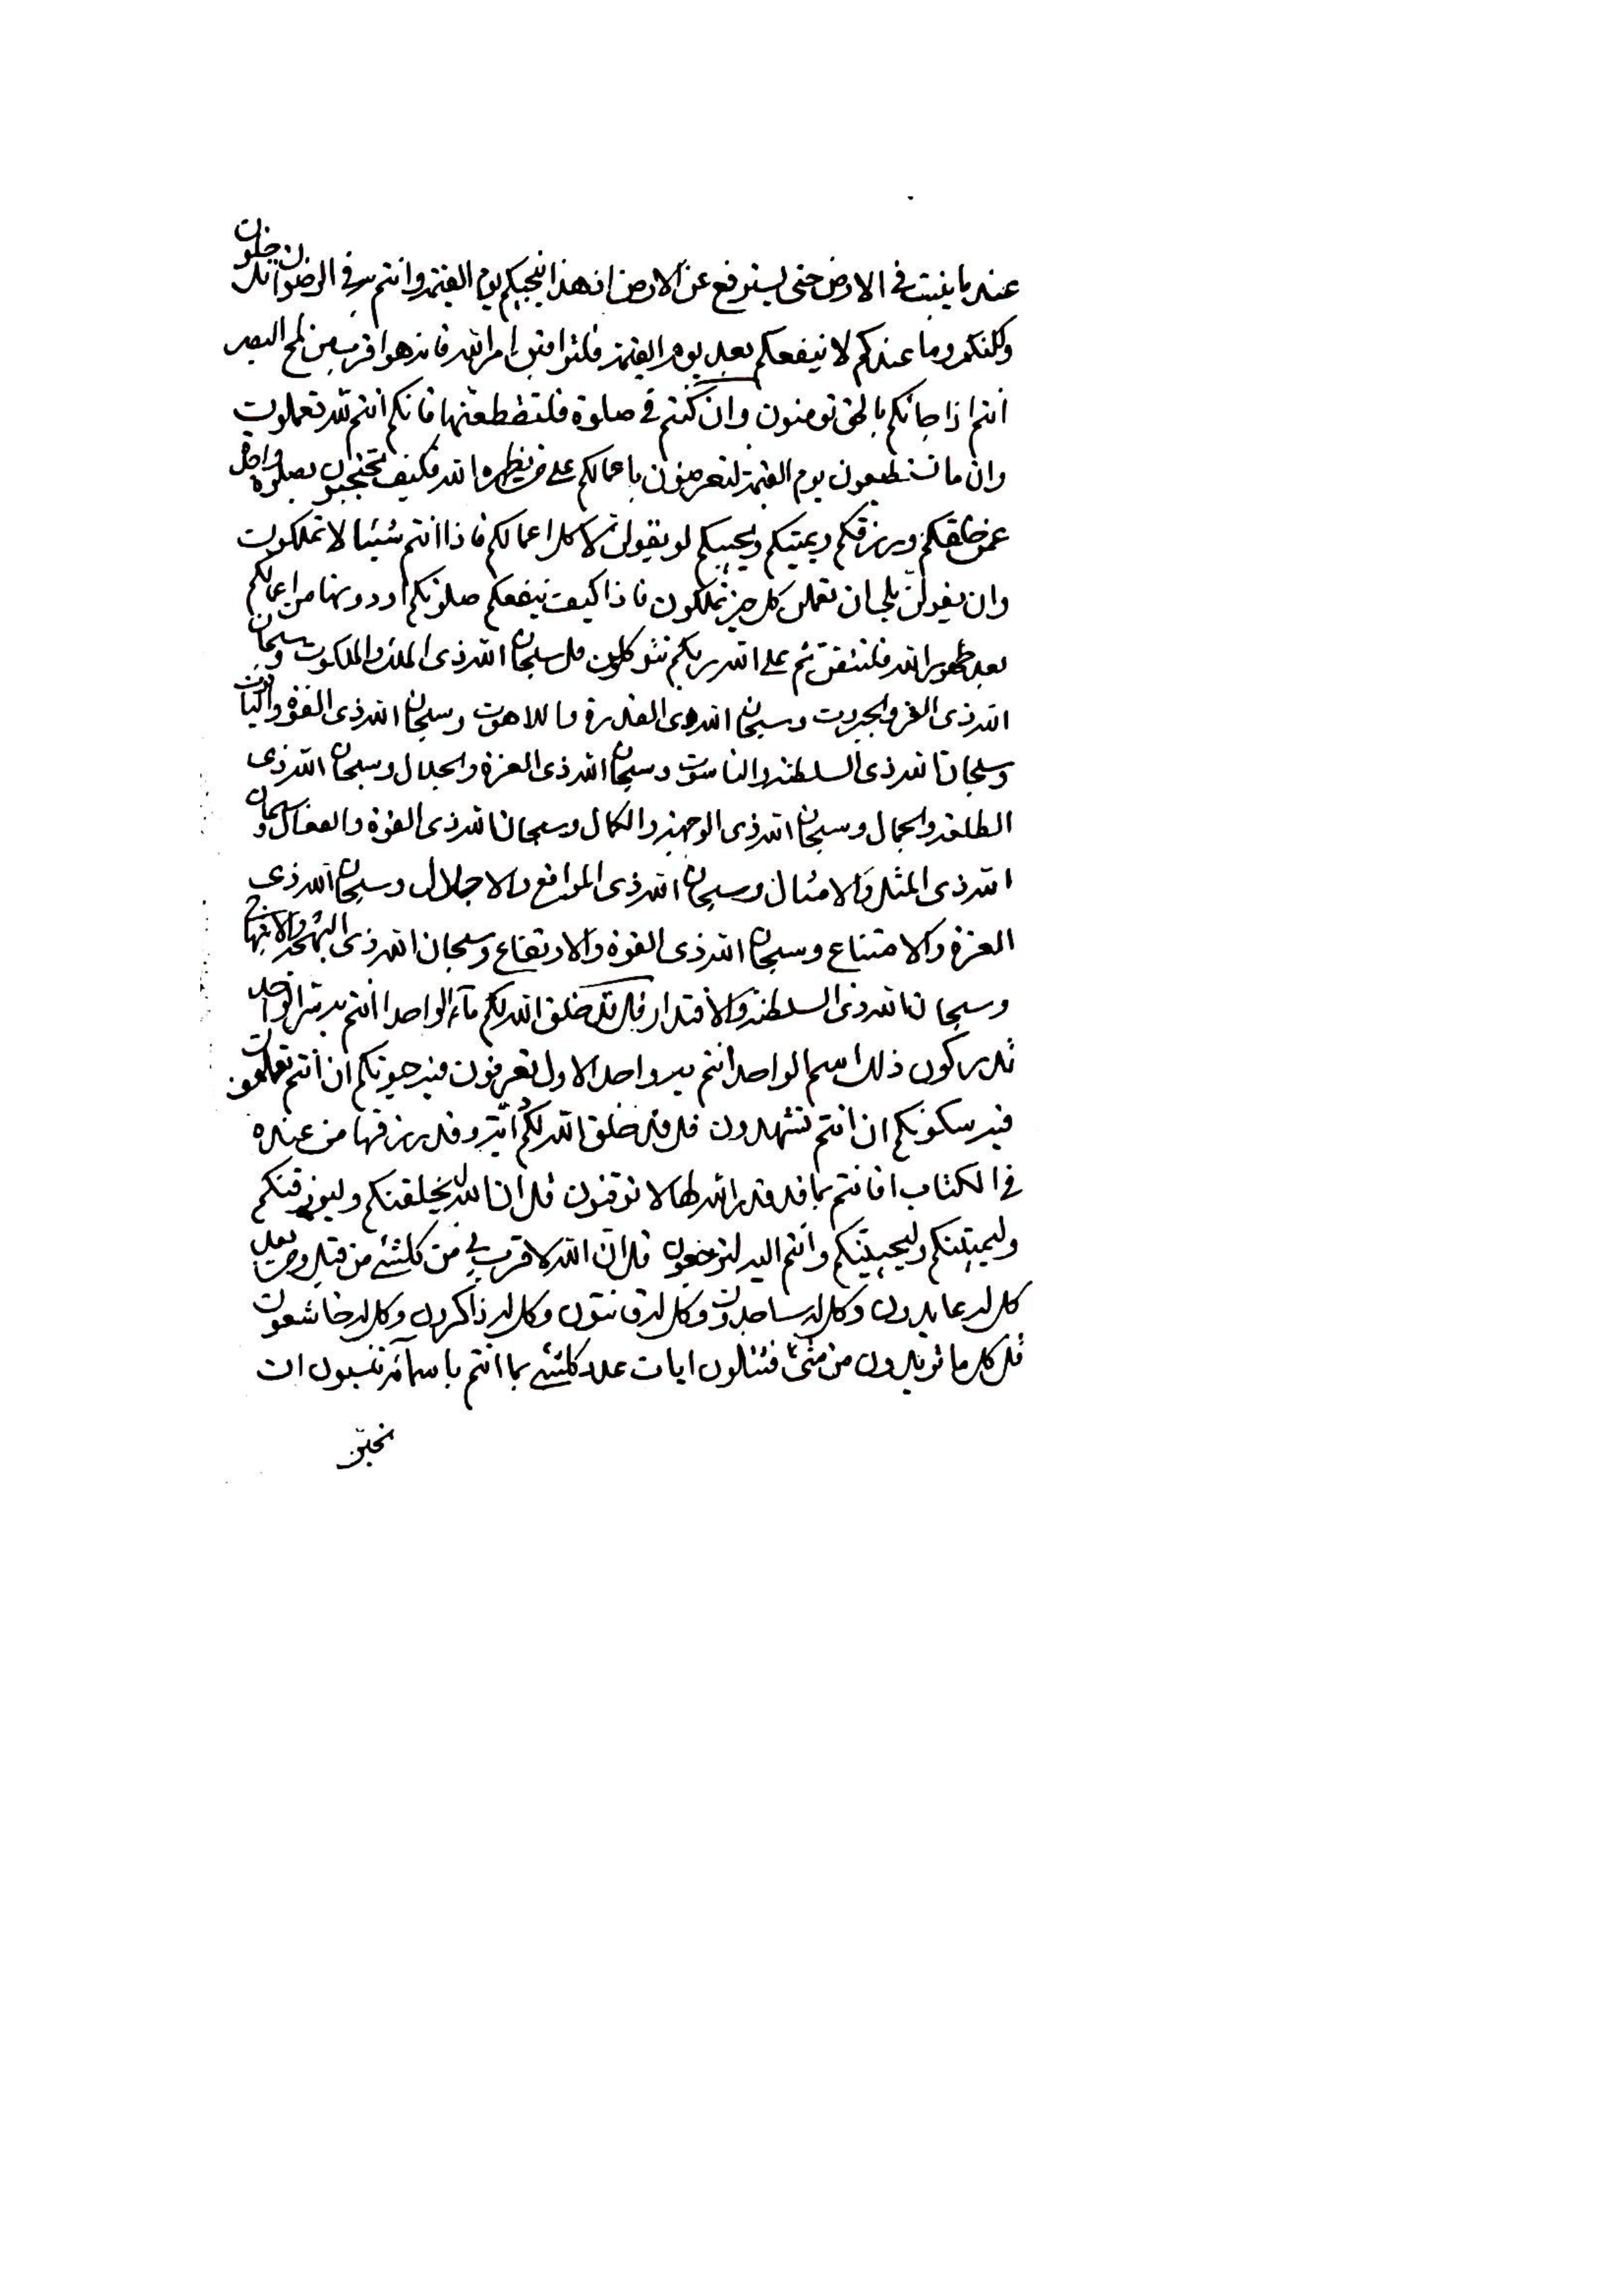 عند ما ينبت في الارض حتى ليسترفع عن الارض ان هذا ينجيكم يوم القيمة وانتم به في الرضوان تدخلون
وكلتكم وما عندكم لا ينفعكم بعد يوم القيمة فلتراقبن امر الله فانه هو اقرب من لمح البصر
انتم اذا جائكم بالحق تومنون وان كنتم في صلوة فلتقطعنها فانكم انتم لله تعملون
وان ما تستطيعون يوم القيمة لتعرضون باعمالكم على من يظهره الله فكيف تحتجبون بصلوة واحدة
عمن خلقكم ورزقكم ويميتكم ويحييكم لو يقولن لا كل اعمالكم فاذا انتم شيئا لا تملكون
وان يقولن بلى ان تعملن كل خير تملكون فاذا كيف ينفعكم صلوتكم او دونها من اعمالكم
بعد ظهور الله فلتتقن ثم على الله ربكم تتوكلون قل سبحان الله ذي الملك والملكوت وسبحان
الله ذي العز والجبروت وسبحان الله ذي القدرة واللاهوت وسبحان الله ذي القوة والياقوت
وسبحان الله ذي السلطنة والناسوت وسبحان الله ذي العزة والجلال وسبحان الله ذي
الطلعة والجمال وسبحان الله ذي الوجهة والكمال وسبحان الله ذي القوة والفعال وسبحان
الله ذي المثل والامثال وسبحان الله ذي المواقع والاجلال وسبحان الله ذي
العزة والامتناع وسبحان الله ذي القوة والارتفاع وسبحان الله ذي البهجة والابتهاج
وسبحان الله ذي السلطنة والاقتدار قل قد خلق الله لكم ماء الواحد انتم به سر الواحد
تدركون ذلك اسم الواحد انتم به واحد الاول تعرفون فيه حيوتكم ان انتم تعلمون
فيه سكونكم ان انتم تشهدون قل قد خلق الله لكم دابة وقد رزقها من عنده
في الكتاب افانتم بما قد قدر الله لها لا توقنون قل ان الله ليخلقنكم وليرزقنكم
وليميتنكم وليحيينكم وانتم اليه لترجعون قل ان الله لاقرب بي من كلشئ من قبل ومن بعد
كل له عابدون وكل له ساجدون وكل له قانتون وكل له ذاكرون وكل له خاشعون
قل كل ما تريدون من شئ فتتلون ايات عدد كلشئ بما انتم باسمائه تنسبون ان